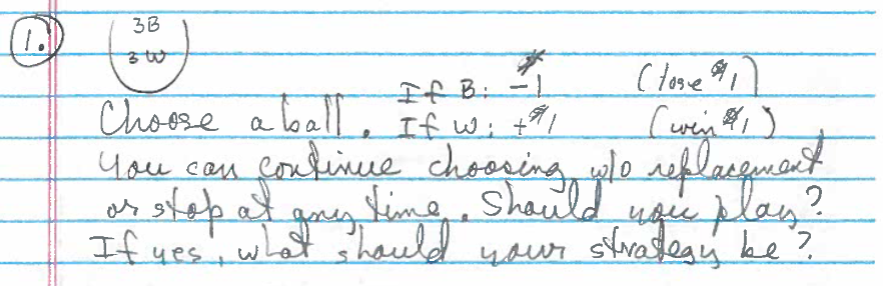 1. 3B
3 W
If B: -1 (lose $1)
Choose a ball. If W: +$1 (win $1)
You can continue choosing w/o replacement
or stop at any time. Should you play?
If yes, what should your strategy be?